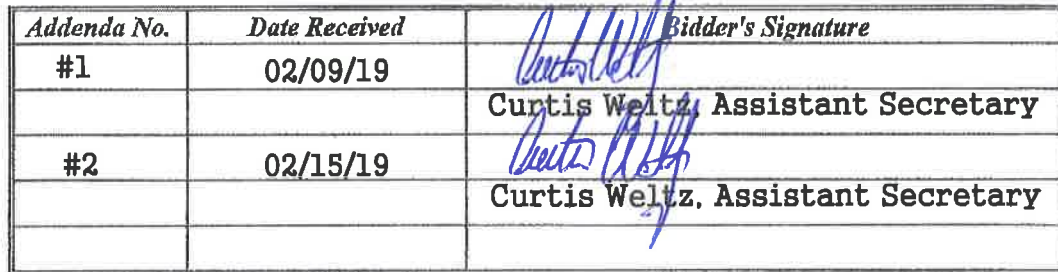 Addenda No. Date Received Bidder's Signature
#1 02/09/19
Curtis Weltz, Assistant Secretary
#2 02/15/19
Curtis Weltz, Assistant Secretary